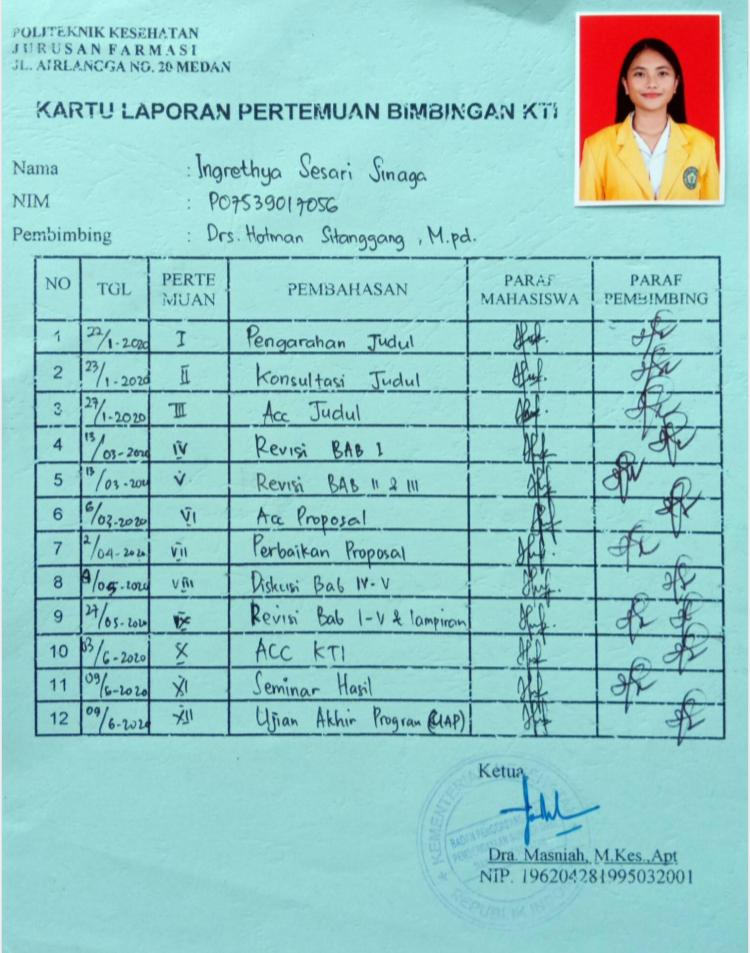 POLITEKNIK KESEHATAN
JURUSAN FARMASI
JL. AIRLANGGA NO. 20 MEDAN
KARTU LAPORAN PERTEMUAN BIMBINGAN KTI
Nama : Ingrethya Sesari Sinaga
NIM : P07539017056
Pembimbing : Drs. Hotman Sitanggang, M.pd.
NO TGL PERTEMUAN PEMBAHASAN PARAF MAHASISWA PARAF PEMBIMBING
1 22/1-2020 I Pengarahan Judul
2 23/1-2020 II Konsultasi Judul
3 27/1-2020 III Acc Judul
4 13/03-2020 IV Revisi BAB I
5 13/03-2020 V Revisi BAB II & III
6 6/03-2020 VI Acc Proposal
7 2/04-2020 VII Perbaikan Proposal
8 /05-2020 VIII Diskusi Bab IV-V
9 27/05-2020 IX Revisi Bab I-V & lampiran
10 03/6-2020 X ACC KTI
11 09/6-2020 XI Seminar Hasil
12 09/6-2020 XII Ujian Akhir Program (UAP)
Ketua
Dra. Masniah, M.Kes.,Apt
NIP. 196204281995032001
KEMENTERIAN
REPUBLIK INDO